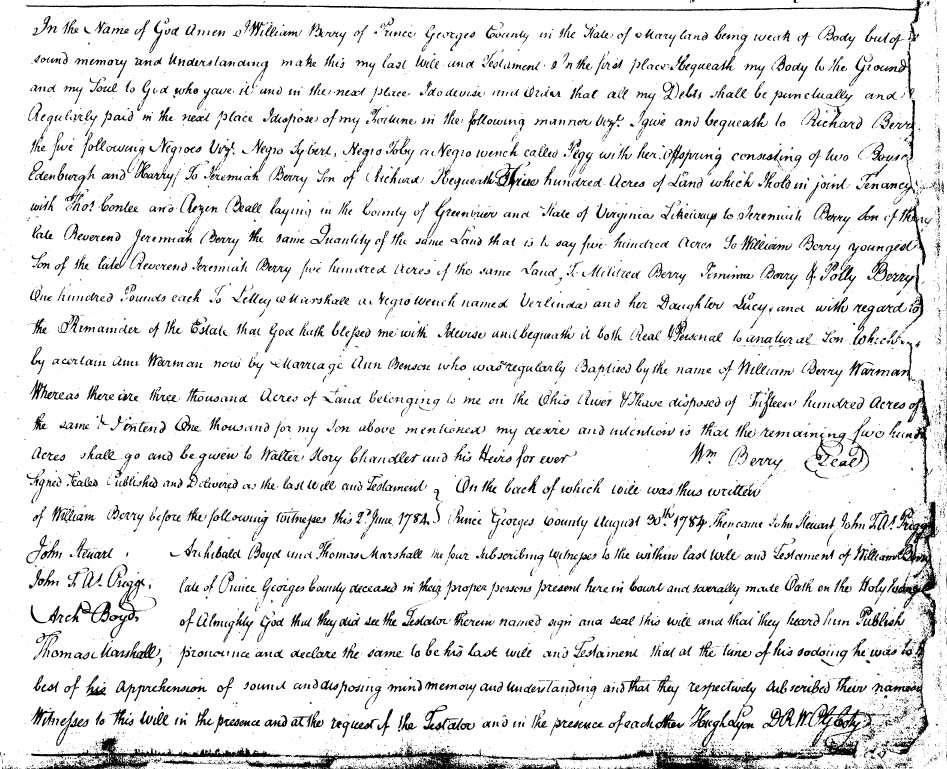 In the Name of God Amen I William Berry of Prince Georges County in the State of Maryland being weak of Body but of
sound memory and Understanding make this my last will and Testament. In the first place I bequeath my Body to the Ground
and my Soul to God who gave it and in the next place I do devise and Order that all my Debts shall be punctually and
Regularly paid in the next place I dispose of my Fortune in the following mannor Vizt. I give and bequeath to Richard Berry
the five following Negroes Vizt. Negro Sybert, Negro Toby a Negro wench called Pegy with her Offspring consisting of two Boys
Edenburgh and Harry, To Jeremiah Berry Son of Richard I bequeath Five hundred Acres of Land which I hold in joint Tenancy
with Thos. Contee and Rezen Beall laying in the County of Greenbrier and State of Virginia Likeways to Jeremiah Berry Son of the
late Reverend Jeremiah Berry the same Quantity of the same Land that is to say five hundred Acres To William Berry youngest
Son of the late Reverend Jeremiah Berry five hundred Acres of the same Land, To Mildred Berry Jemima Berry & Polly Berry
One hundred Pounds each To Lelley Marshall a Negro wench named Verlinda and her Daughter Lucy, and with regard to
the Remainder of the Estate that God hath blessed me with I devise and bequeath it both Real & Personal to a natural Son which
by a certain Ann Warman now by Marriage Ann Benson who was regularly Baptised by the name of William Berry Warman
Whereas there are three thousand Acres of Land belonging to me on the Ohio River & I have disposed of Fifteen hundred Acres of
the same & I intend One thousand for my Son above mentioned my desire and intention is that the remaining five hund
Acres shall go and be given to Walter Story Chandler and his Heirs for ever Wm. Berry (Seal)
Signed Sealed Published and Delivered as the last will and Testament } On the back of which will was thus written
of William Berry before the following witnesses this 2d. June 1784. } Prince Georges County August 30th. 1784. Then came John Steuart John F. As. Priggs
John Steuart. Archibald Boyd and Thomas Marshall the four Subscribing witnesses to the within last will and Testament of William Berry
John F. As. Priggs. late of Prince Georges County deceased in their proper persons present here in Court and severally made Oath on the Holy Evangels
Archd. Boyd. of Almighty God that they did see the Testator therein named sign and seal this will and that they heard him Publish
Thomas Marshall, pronounce and declare the same to be his last will and Testament that at the time of his so doing he was to
best of his Apprehension of sound and disposing mind memory and understanding and that they respectively subscribed their names
Witnesses to this will in the presence and at the request of the Testator and in the presence of each other Hugh Lyon D.R.W.P.G.Coty.